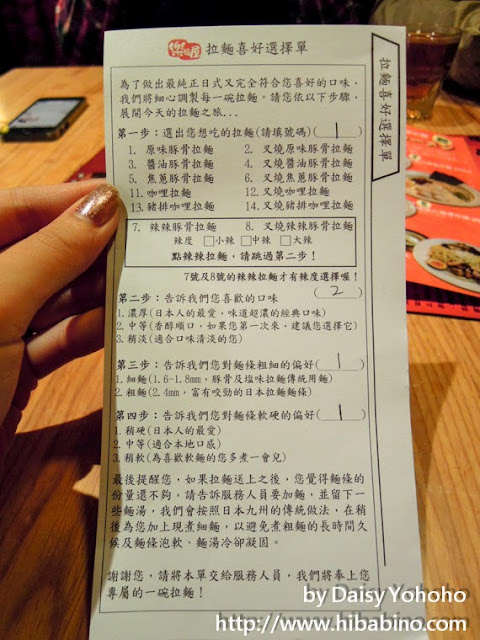 樂山屋 拉麵喜好選擇單
拉麵喜好選擇單
為了做出最純正日式又完全符合您喜好的口味，
我們將細心調製每一碗拉麵。請您依以下步驟，
展開今天的拉麵之旅...
第一步：選出您想吃的拉麵(請填號碼)( 1 )
1. 原味豚骨拉麵 2. 叉燒豚骨拉麵
3. 醬油豚骨拉麵 4. 叉燒醬油豚骨拉麵
5. 焦蔥豚骨拉麵 6. 叉燒焦蔥豚骨拉麵
11.咖哩拉麵 12.叉燒咖哩拉麵
13.豬排咖哩拉麵 14.叉燒豬排咖哩拉麵
7. 辣辣豚骨拉麵 8. 叉燒辣辣豚骨拉麵
辣度 □小辣 □中辣 □大辣
點辣辣拉麵，請跳過第二步！
7號及8號的辣辣拉麵才有辣度選擇喔！
第二步：告訴我們您喜歡的口味 ( 2 )
1.濃厚(日本人的最愛，味道超濃的經典口味)
2.中等(香醇順口，如果您第一次來，建議您選擇它)
3.稍淡(適合口味清淡的您)
第三步：告訴我們您對麵條粗細的偏好( 1 )
1.細麵(1.6-1.8mm，豚骨及塩味拉麵傳統用麵)
2.粗麵(2.4mm，富有咬勁的日本拉麵麵條)
第四步：告訴我們您對麵條軟硬的偏好( 1 )
1.稍硬(日本人的最愛)
2.中等(適合本地口感)
3.稍軟(為喜歡軟麵的您多煮一會兒)
最後提醒您，如果拉麵送上之後，您覺得麵條的
份量還不夠，請告訴服務人員要加麵，並留下一
些麵湯，我們會按照日本九州的傳統做法，在稍
後為您加上現煮細麵，以避免煮粗麵的長時間久
候及麵條泡軟、麵湯冷卻凝固。
謝謝您，請將本單交給服務人員，我們將奉上您
專屬的一碗拉麵！
by Daisy Yohoho
http://www.hibabino.com